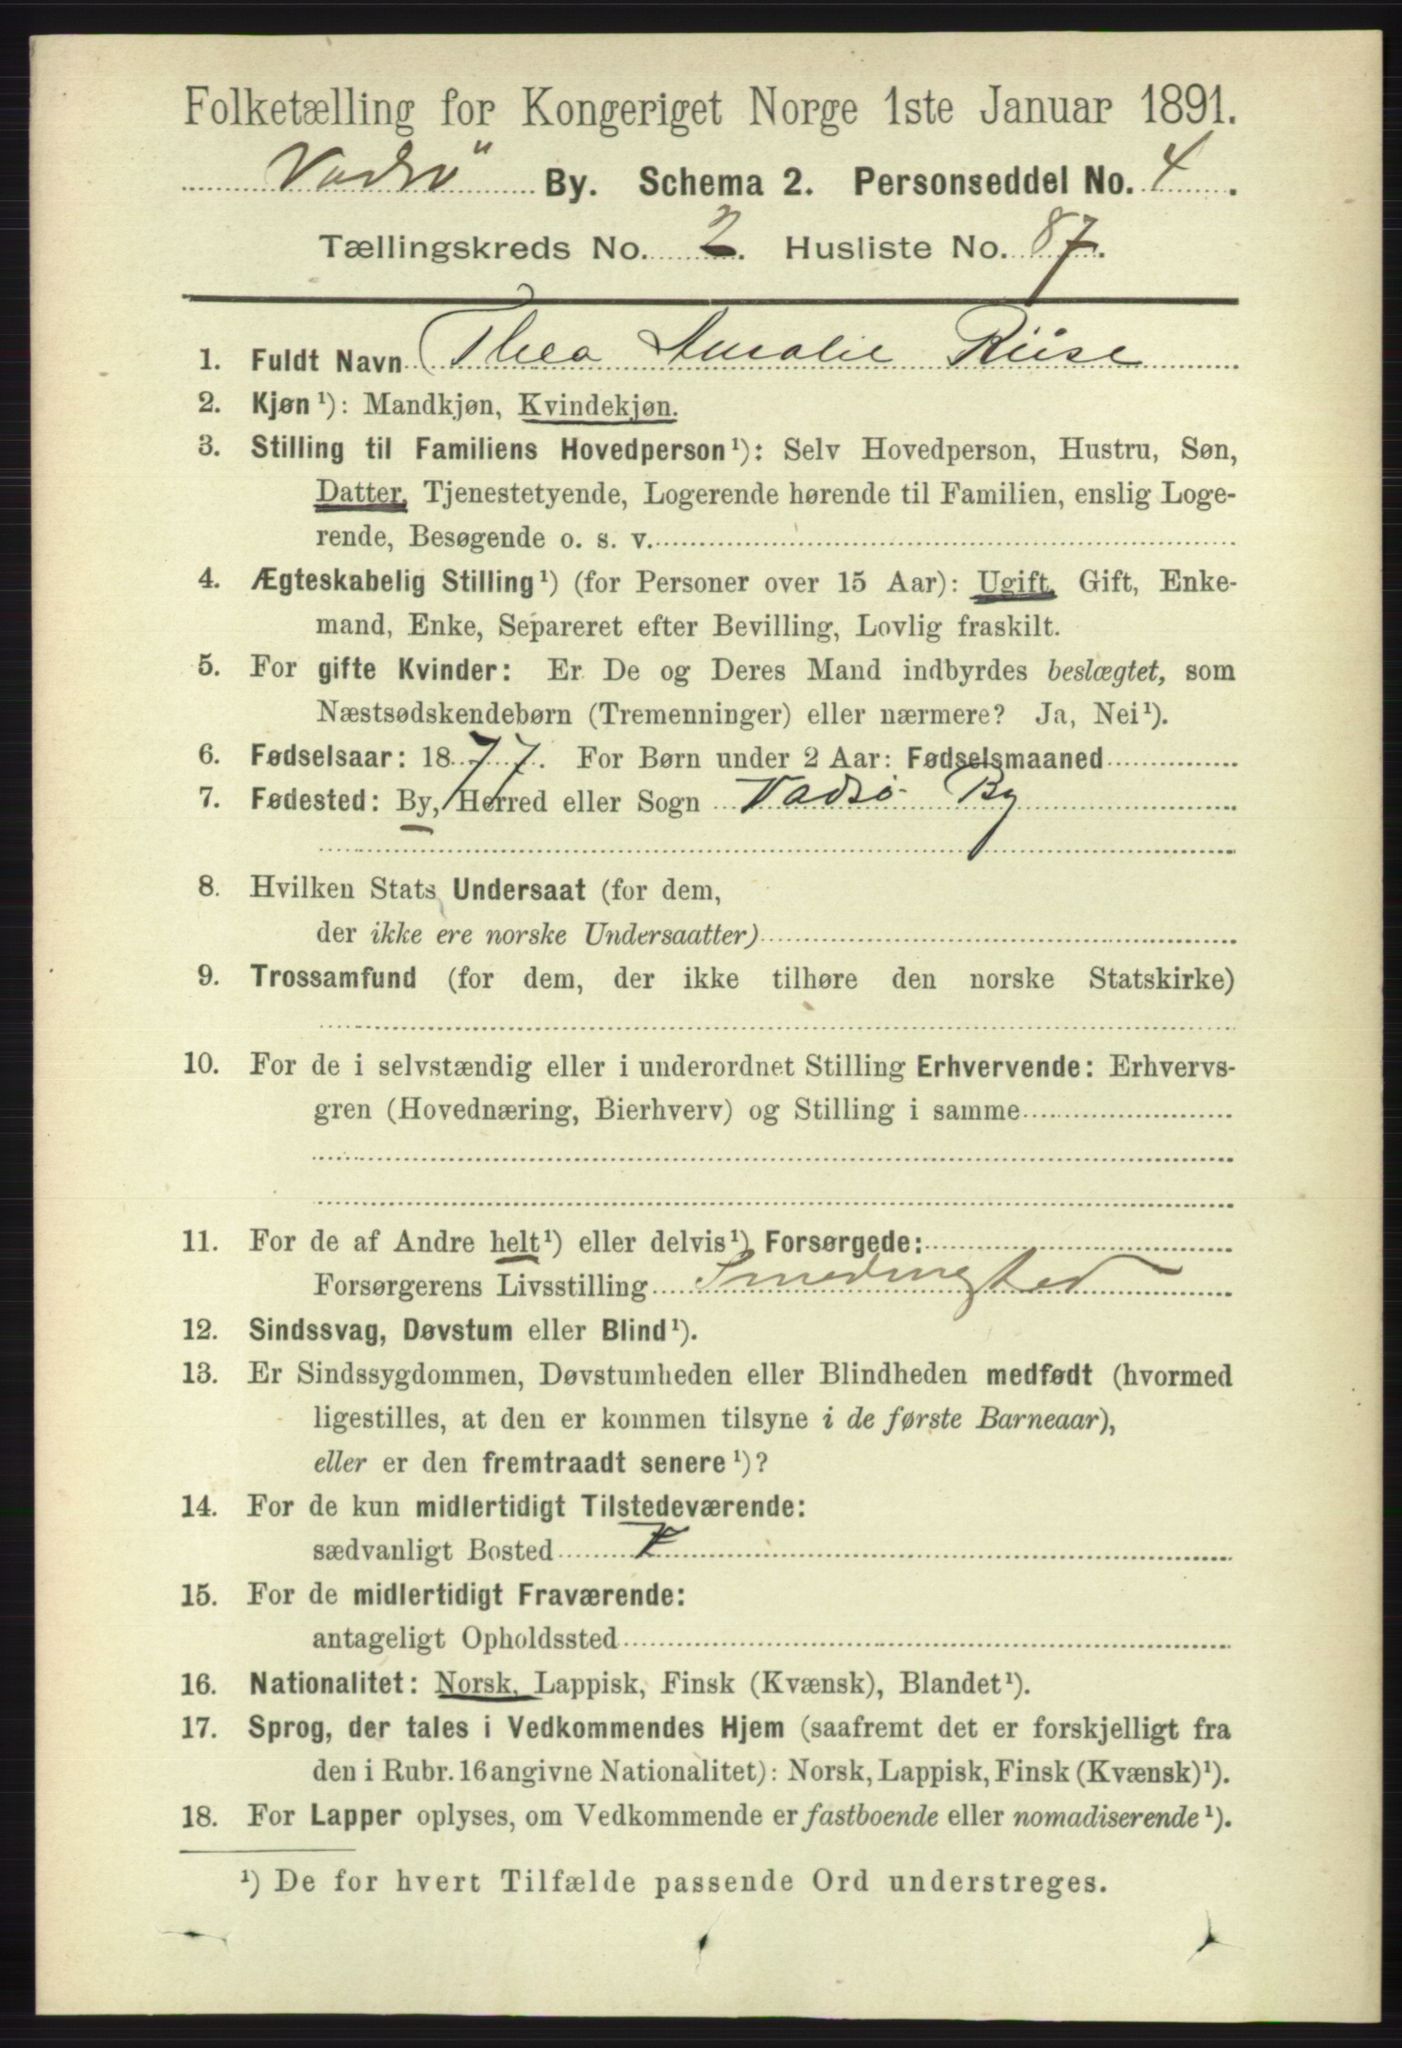 Folketælling for Kongeriget Norge 1ste Januar 1891.
Vadsö By. Schema 2. Personseddel No. 4.
Tællingskreds No. 2. Husliste No. 87.
1. Fuldt Navn Thea Amalie Riise
2. Kjøn¹): Mandkjøn, Kvindekjøn.
3. Stilling til Familiens Hovedperson¹): Selv Hovedperson, Hustru, Søn,
Datter, Tjenestetyende, Logerende hørende til Familien, enslig Loge-
rende, Besøgende o. s. v.
4. Ægteskabelig Stilling¹) (for Personer over 15 Aar): Ugift, Gift, Enke-
mand, Enke, Separeret efter Bevilling, Lovlig fraskilt.
5. For gifte Kvinder: Er De og Deres Mand indbyrdes beslægtet, som
Næstsødskendebørn (Tremenninger) eller nærmere? Ja, Nei¹).
6. Fødselsaar: 1877. For Børn under 2 Aar: Fødselsmaaned
7. Fødested: By, Herred eller Sogn Vadsö By
8. Hvilken Stats Undersaat (for dem,
der ikke ere norske Undersaatter)
9. Trossamfund (for dem, der ikke tilhøre den norske Statskirke)
10. For de i selvstændig eller i underordnet Stilling Erhvervende: Erhvervs-
gren (Hovednæring, Bierhverv) og Stilling i samme
11. For de af Andre helt¹) eller delvis¹) Forsørgede:
Forsørgerens Livsstilling
12. Sindssvag, Døvstum eller Blind¹).
13. Er Sindssygdommen, Døvstumheden eller Blindheden medfødt (hvormed
ligestilles, at den er kommen tilsyne i de første Barneaar),
eller er den fremtraadt senere¹)?
14. For de kun midlertidigt Tilstedeværende:
sædvanligt Bosted
15. For de midlertidigt Fraværende:
antageligt Opholdssted
16. Nationalitet: Norsk, Lappisk, Finsk (Kvænsk), Blandet¹).
17. Sprog, der tales i Vedkommendes Hjem (saafremt det er forskjelligt fra
den i Rubr. 16 angivne Nationalitet): Norsk, Lappisk, Finsk (Kvænsk)¹).
18. For Lapper oplyses, om Vedkommende er fastboende eller nomadiserende¹).
¹) De for hvert Tilfælde passende Ord understreges.